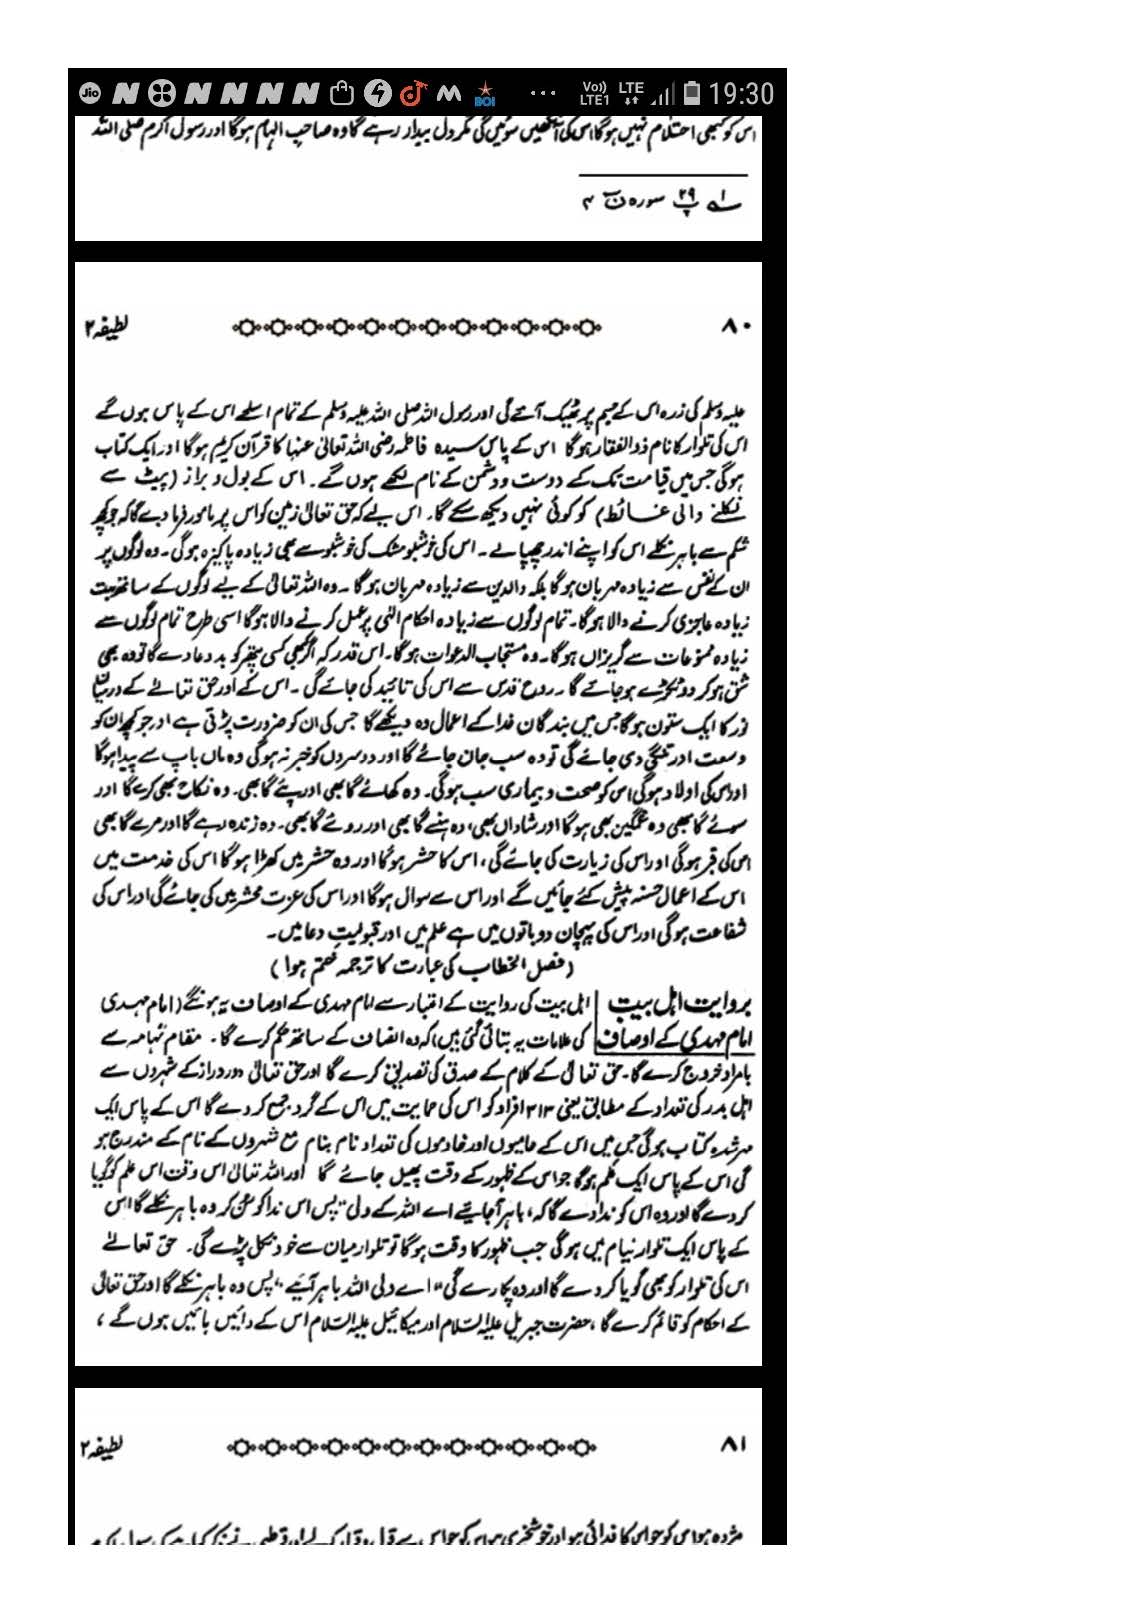 Jio Vo) LTE1 LTE 19:30
BOI
اس کو کبھی احتلام نہیں ہوگا اس کی آنکھیں سوئیں گی مگر دل بیدار رہے گا وہ صاحب الہام ہوگا اور رسول اکرم صلی اللہ
۱؎ پ ۲۹ سورہ ن ۴
۸۰ لطیفہ ۲
علیہ وسلم کی زرہ اس کے جسم پر ٹھیک آئے گی اور رسول اللہ صلی اللہ علیہ وسلم کے تمام اسلحے اس کے پاس ہوں گے
اس کی تلوار کا نام ذوالفقار ہوگا اس کے پاس سیدہ فاطمہ رضی اللہ تعالیٰ عنہا کا قرآن کریم ہوگا اور ایک کتاب
ہوگی جس میں قیامت تک کے دوست و دشمن کے نام لکھے ہوں گے۔ اس کے بول و براز (پیٹ سے
نکلنے والی غائط) کو کوئی نہیں دیکھ سکے گا۔ اس لیے کہ حق تعالیٰ زمین کو اس پر مامور فرما دے گا کہ جو کچھ
شکم سے باہر نکلے اس کو اپنے اندر چھپا لے۔ اس کی خوشبو مشک کی خوشبو سے بھی زیادہ پاکیزہ ہوگی۔ وہ لوگوں پر
ان کے نفس سے زیادہ مہربان ہوگا بلکہ والدین سے زیادہ مہربان ہوگا۔ وہ اللہ تعالیٰ کے لیے لوگوں کے ساتھ بہت
زیادہ عاجزی کرنے والا ہوگا۔ تمام لوگوں سے زیادہ احکام الٰہی پر عمل کرنے والا ہوگا اسی طرح تمام لوگوں سے
زیادہ ممنوعات سے گریزاں ہوگا۔ وہ مستجاب الدعوات ہوگا۔ اس قدر کہ اگر کبھی کسی پتھر کو بد دعا دے گا تو وہ بھی
شق ہو کر دو ٹکڑے ہو جائے گا۔ روح قدس سے اس کی تائید کی جائے گی۔ اس کے اور حق تعالےٰ کے درمیان
نور کا ایک ستون ہوگا جس میں بندگان خدا کے اعمال وہ دیکھے گا جس کی ان کو ضرورت پڑتی ہے اور جو کچھ ان کو
وسعت اور تنگی دی جائے گی تو وہ سب جان جائے گا اور دوسروں کو خبر نہ ہوگی وہ ماں باپ سے پیدا ہوگا
اور اس کی اولاد ہوگی اس کو صحت و بیماری سب ہوگی۔ وہ کھائے گا بھی اور پئے گا بھی۔ وہ نکاح بھی کرے گا اور
سوئے گا بھی وہ غمگین بھی ہوگا اور شاداں بھی، وہ ہنسے گا بھی اور روئے گا بھی۔ وہ زندہ رہے گا اور مرے گا بھی
اس کی قبر ہوگی اور اس کی زیارت کی جائے گی، اس کا حشر ہوگا اور وہ حشر میں کھڑا ہوگا اس کی خدمت میں
اس کے اعمال حسنہ پیش کئے جائیں گے اور اس سے سوال ہوگا اور اس کی عزت محشر میں کی جائے گی اور اس کی
شفاعت ہوگی اور اس کی پہچان دو باتوں میں ہے علم میں اور قبولیت دعا میں۔
(فصل الخطاب کی عبارت کا ترجمہ ختم ہوا)
بروایت اہل بیت اہل بیت کی روایت کے اعتبار سے امام مہدی کے اوصاف یہ ہونگے (امام مہدی
امام مہدی کے اوصاف کی علامات یہ بتائی گئی ہیں) کہ وہ انصاف کے ساتھ حکم کرے گا۔ مقام تہامہ سے
بامراد خروج کرے گا۔ حق تعالیٰ کے کلام کے صدق کی تصدیق کرے گا اور حق تعالیٰ دور دراز کے شہروں سے
اہل بدر کی تعداد کے مطابق یعنی ۳۱۳ افراد کو اس کی حمایت میں اس کے گرد جمع کر دے گا اس کے پاس ایک
مہر شدہ کتاب ہوگی جس میں اس کے حامیوں اور خادموں کی تعداد نام بنام مع شہروں کے نام کے مندرج ہو
گی اس کے پاس ایک علم ہوگا جو اس کے ظہور کے وقت پھیل جائے گا اور اللہ تعالیٰ اس وقت اس علم کو گویا
کر دے گا اور وہ اس کو ندا دے گا کہ، باہر آجایئے اے اللہ کے ولی" پس اس ندا کو سن کر وہ باہر نکلے گا اس
کے پاس ایک تلوار نیام میں ہوگی جب ظہور کا وقت ہوگا تو تلوار میان سے خود نکل پڑے گی۔ حق تعالےٰ
اس کی تلوار کو بھی گویا کر دے گا اور وہ پکارے گی "اے ولی اللہ باہر آیئے"، پس وہ باہر نکلے گا اور حق تعالیٰ
کے احکام کو قائم کرے گا، حضرت جبریل علیہ السلام اور میکائیل علیہ السلام اس کے دائیں بائیں ہوں گے،
۸۱ لطیفہ ۲
مژدہ ہو اس کو جو اس کا فدائی ہو اور خوشخبری ہو اس کو جو اس سے